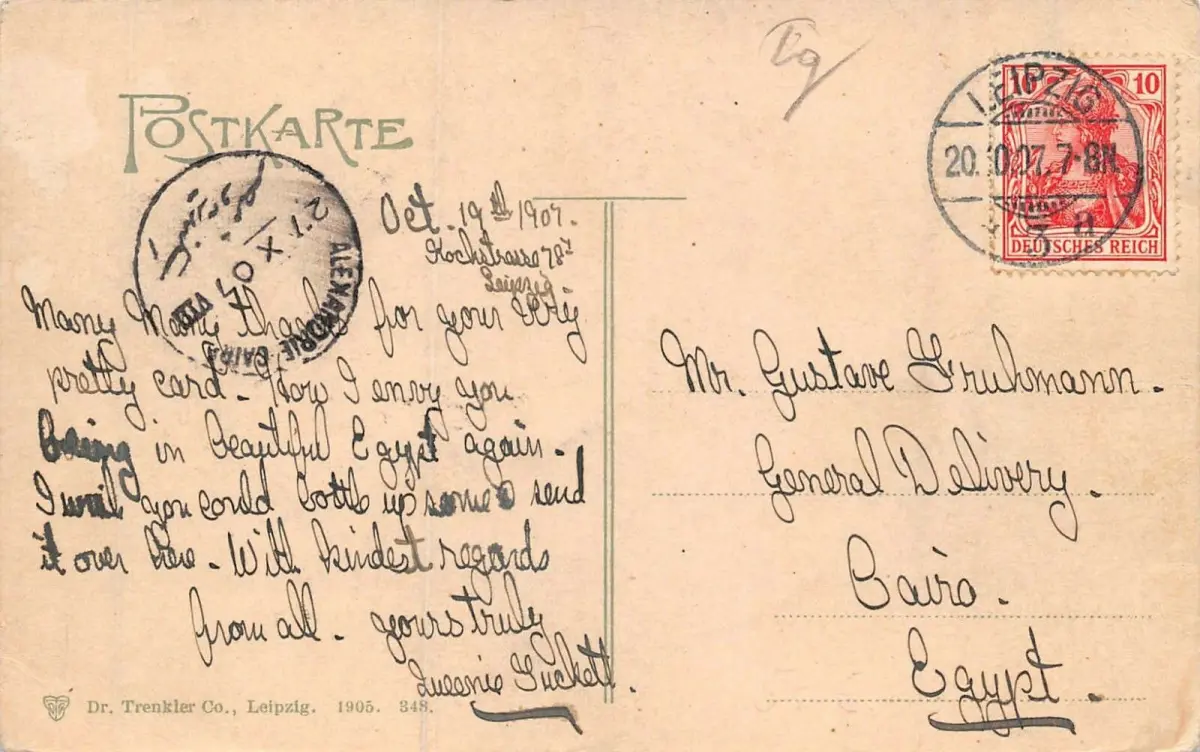 POSTKARTE
Oct. 19th 1907.
Kochstrasse 78
Leipzig
Many Many thanks for your very
pretty card. How I envy you
being in beautiful Egypt again.
I wish you could bottle up some & send
it over here. With kindest regards
from all. yours truly
Queenie
Dr. Trenkler Co., Leipzig. 1905. 348.
27 X 07 VIII
ALEXANDRIE CAIRE
LEIPZIG
20.10.07. 7-8N.
3 a
10 10
DEUTSCHES REICH
Mr. Gustave Fruhmann.
General Delivery.
Cairo.
Egypt.